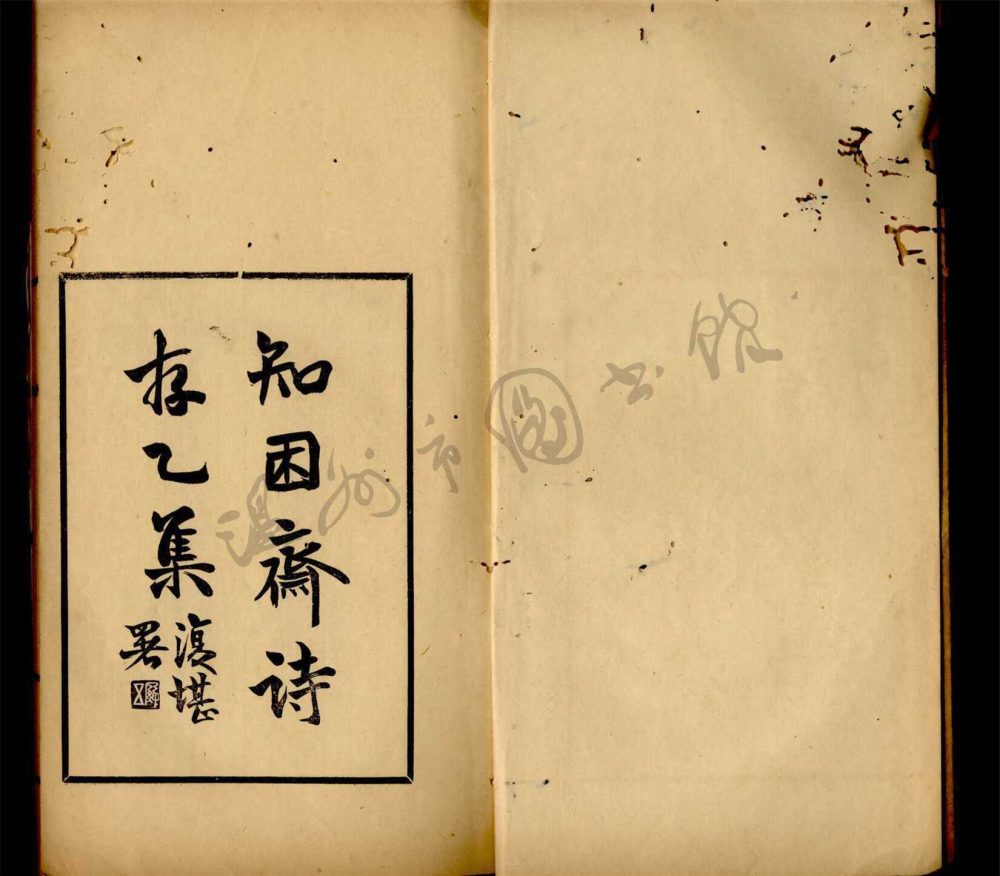 知困齋诗
存乙集
澓堪
署
温州市图书馆